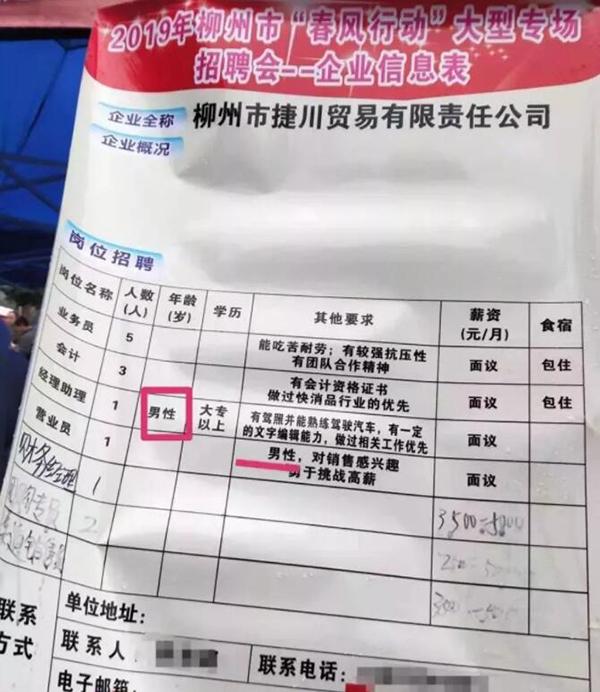 2019年柳州市“春风行动”大型专场
招聘会--企业信息表
企业全称 柳州市捷川贸易有限责任公司
企业概况
岗位招聘
岗位名称 人数(人) 年龄(岁) 学历 其他要求 薪资(元/月) 食宿
业务员 5 能吃苦耐劳；有较强抗压性
有团队合作精神 面议 包住
会计 3 有会计资格证书
做过快消品行业的优先 面议 包住
经理助理 1 男性 大专以上 有驾照并能熟练驾驶汽车，有一定
的文字编辑能力，做过相关工作优先 面议
营业员 1 男性，对销售感兴趣
勇于挑战高薪 面议
财务经理 1 3500-5000
2
单位地址：
联系方式
联系人 联系电话：
电子邮箱